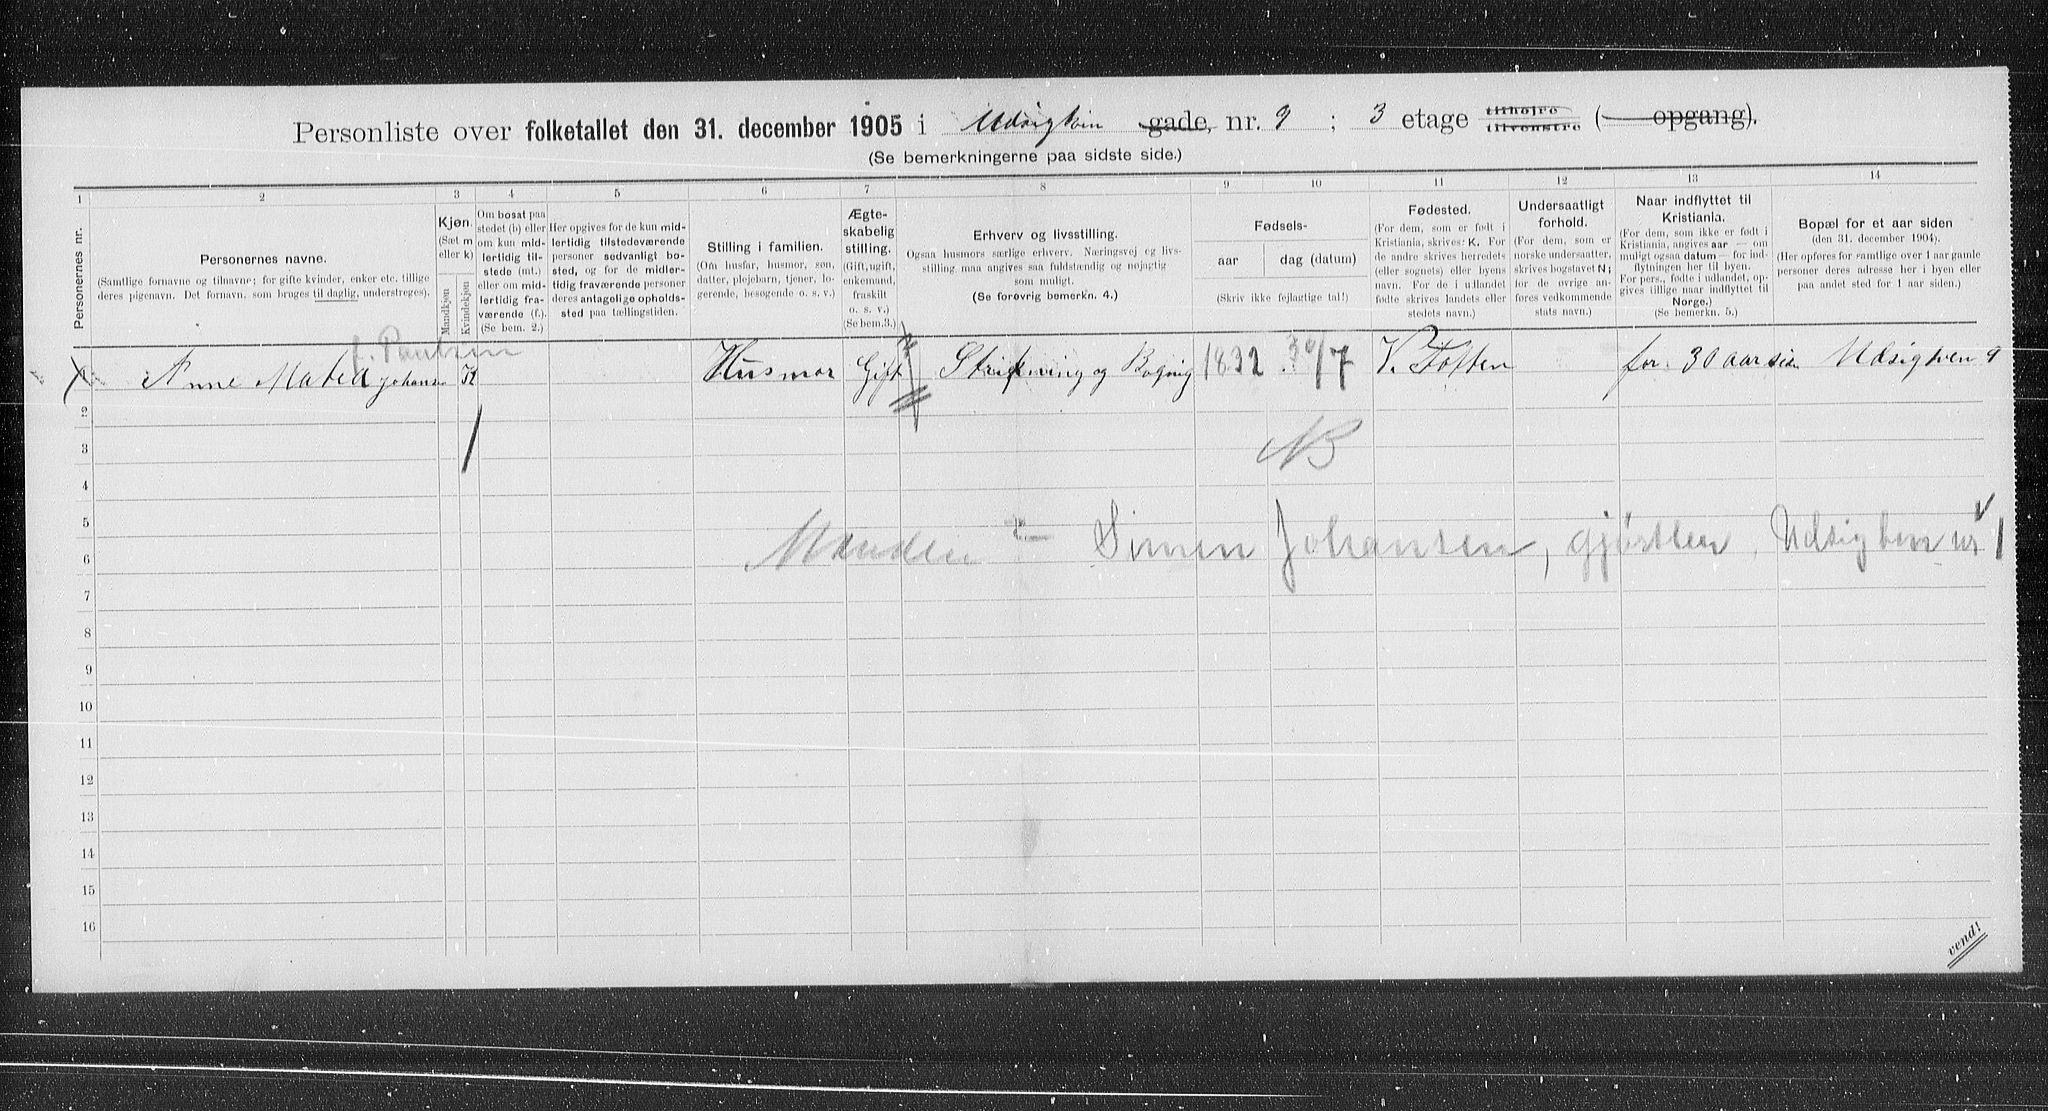 Personliste over folketallet den 31. december 1905 i Udsigtvin gade, nr. 9 ; 3 etage tilhøjre tilvenstre ( opgang).
(Se bemerkningerne paa sidste side.)
1 2 3 4 5 6 7 8 9 10 11 12 13 14
Personernes nr.
Personernes navne.
(Samtlige fornavne og tilnavne; for gifte kvinder, enker etc. tillige
deres pigenavn. Det fornavn, som bruges til daglig, understreges).
Kjøn.
(Sæt m
eller k)
Mandkjøn
Kvindekjøn
Om bosat paa
stedet (b) eller
om kun mid-
lertidig til-
stede (mt.)
eller om mid-
lertidig fra-
værende (f.).
(Se bem. 2.)
Her opgives for de kun mid-
lertidig tilstedeværende
personer sedvanligt bo-
sted, og for de midler-
tidig fraværende personer
deres antagelige opholds-
sted paa tællingstiden.
Stilling i familien.
(Om husfar, husmor, søn,
datter, plejebarn, tjener, lo-
gerende, besøgende o. s. v.)
Ægte-
skabelig
stilling.
(Gift, ugift,
enkemand,
fraskilt
o. s. v.)
(Se bem. 3.)
Erhverv og livsstilling.
Ogsaa husmors særlige erhverv. Næringsvej og livs-
stilling maa angives saa fuldstændig og nøjagtig
som muligt.
(Se forøvrig bemerkn. 4.)
Fødsels-
aar
dag (datum)
(Skriv ikke fejlagtige tal!)
Fødested.
(For dem, som er født i
Kristiania, skrives: K. For
de andre skrives herredets
(eller sognets) eller byens
navn. For de i udlandet
fødte skrives landets eller
stedets navn.)
Undersaatligt
forhold.
(For dem, som er
norske undersaatter,
skrives bogstavet N;
for de øvrige an-
føres vedkommende
stats navn.)
Naar indflyttet til
Kristiania.
(For dem, som ikke er født i
Kristiania, angives aar — om
muligt ogsaa datum — for ind-
flytningen her til byen.
For pers., fødte i udlandet, op-
gives tillige naar indflyttet til
Norge.)
(Se bemerkn. 5.)
Bopæl for et aar siden
(den 31. december 1904).
(Her opføres for samtlige over 1 aar gamle
personer deres adresse her i byen eller
paa andet sted for 1 aar siden.)
f. Paulsen
1 Anne Matea Johans K Husmor Gift Strikning og Bognig 1832 30/7 V. Toften for 30 aar sien Udsigtven 9
2
3 NB
4
5
6 Manden Simen Johansen, gjørtler, Udsigtven nr 1
7
8
9
10
11
12
13
14
15
16
vend!